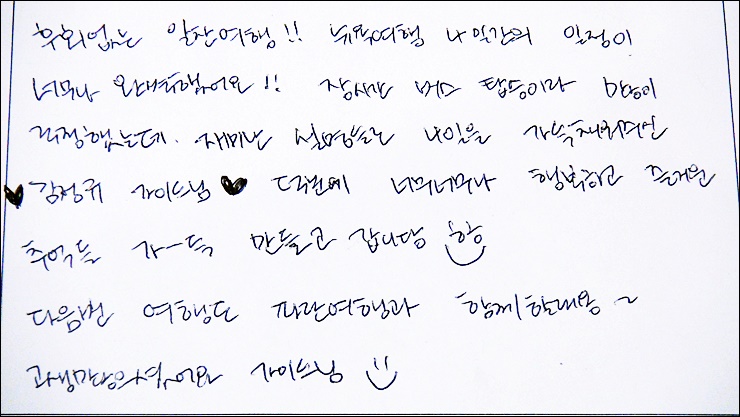 후회없는 알찬여행!! 뉴욕여행 4일간의 일정이
너무나 완벽했어요!! 장시간 버스 탑승이라 많이
걱정했는데. 재미난 설명들로 4일을 가득채워주신
♥김정규 가이드님♥ 덕분에 너무너무나 행복하고 즐거운
추억들 가-득 만들고 갑니당
다음번 여행도 파란여행과 함께할래용~
고생많으셨어요 가이드님